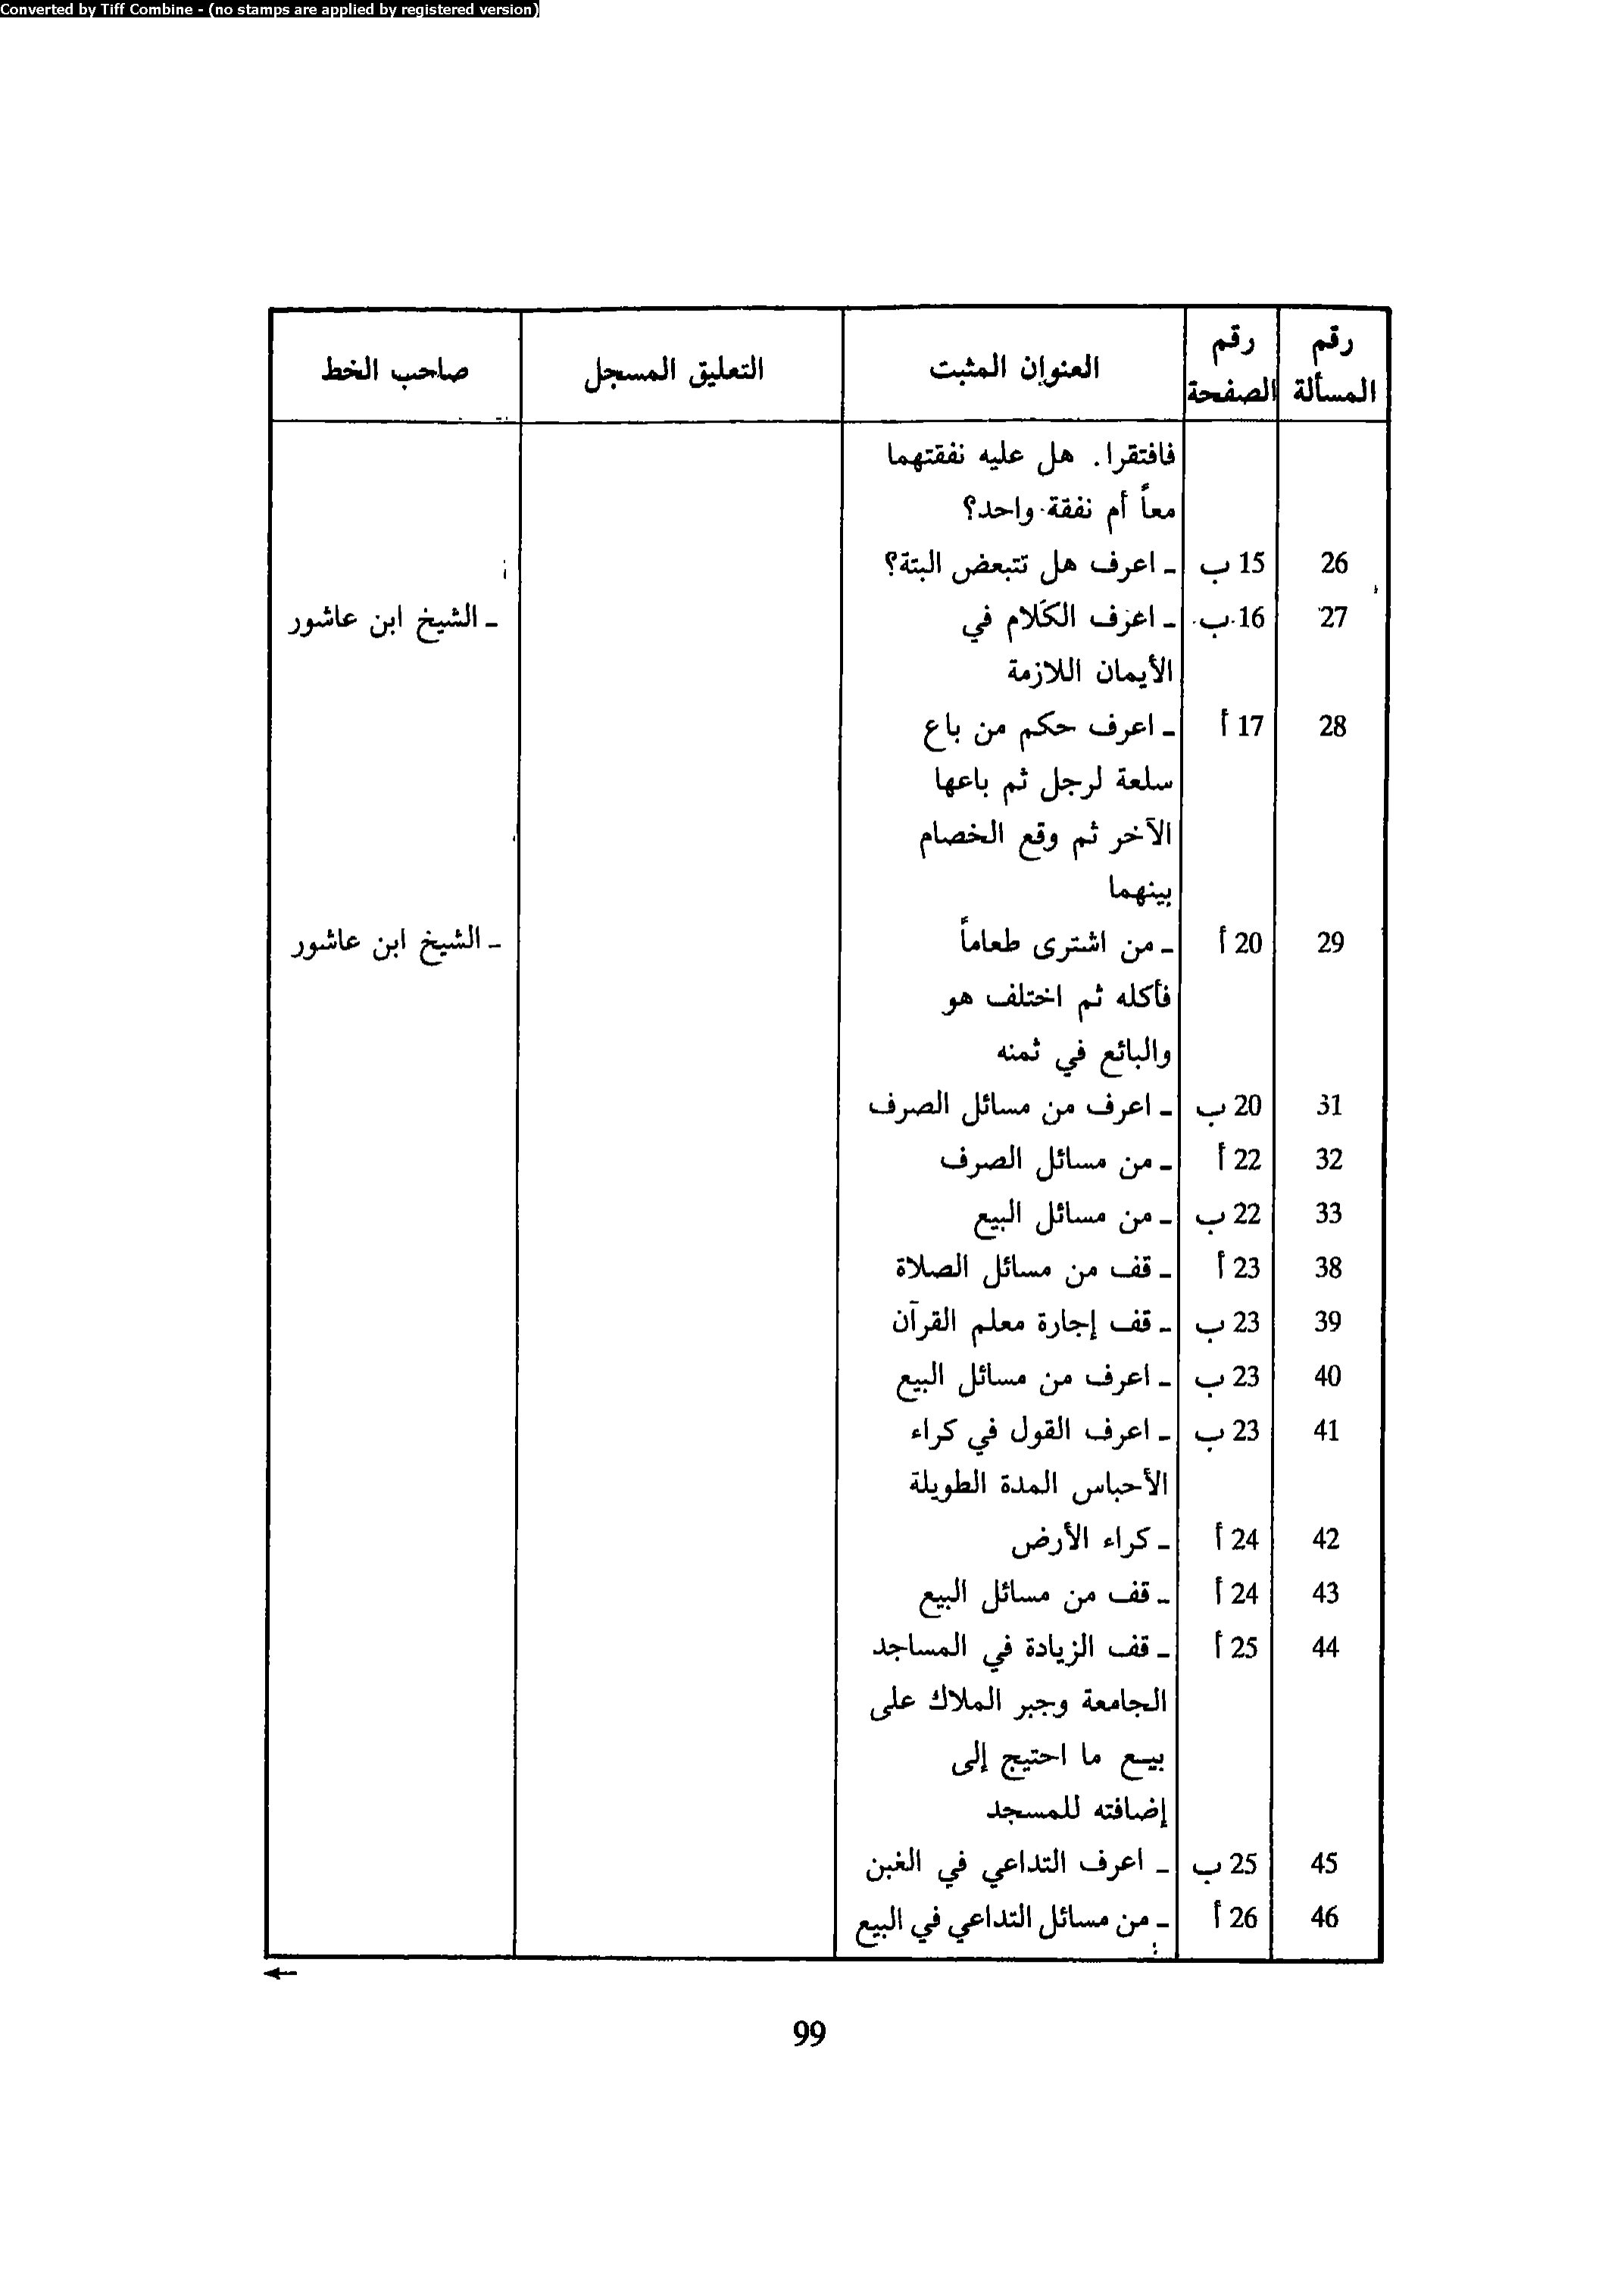 Converted by Tiff Combine - (no stamps are applied by registered version)
رقم المسألة | رقم الصفحة | العنوان المثبت | التعليق المسجل | صاحب الخط
فافتقرا. هل عليه نفقتهما
معاً أم نفقة واحد؟
26 | 15 ب | ـ اعرف هل تتبعض البتة؟
27 | 16 ب | ـ اعرف الكلام في | ـ الشيخ ابن عاشور
الأيمان اللازمة
28 | 17 أ | ـ اعرف حكم من باع
سلعة لرجل ثم باعها
الآخر ثم وقع الخصام
بينهما
29 | 20 أ | ـ من اشترى طعاماً | ـ الشيخ ابن عاشور
فأكله ثم اختلف هو
والبائع في ثمنه
31 | 20 ب | ـ اعرف من مسائل الصرف
32 | 22 أ | ـ من مسائل الصرف
33 | 22 ب | ـ من مسائل البيع
38 | 23 أ | ـ قف من مسائل الصلاة
39 | 23 ب | ـ قف إجارة معلم القرآن
40 | 23 ب | ـ اعرف من مسائل البيع
41 | 23 ب | ـ اعرف القول في كراء
الأحباس المدة الطويلة
42 | 24 أ | ـ كراء الأرض
43 | 24 أ | ـ قف من مسائل البيع
44 | 25 أ | ـ قف الزيادة في المساجد
الجامعة وجبر الملاك على
بيع ما احتيج إلى
إضافته للمسجد
45 | 25 ب | ـ اعرف التداعي في الغبن
46 | 26 أ | ـ من مسائل التداعي في البيع
←
99